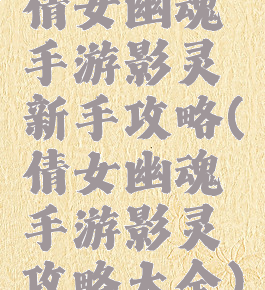 倩女幽魂
手游影灵
新手攻略(
倩女幽魂
手游影灵
攻略大全)